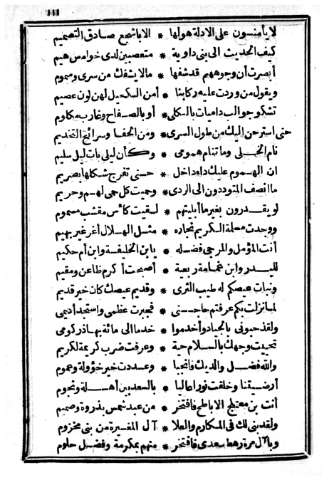 ١٤١
لا يأمنون على الادلة هولها * الا باشجع صادق التصميم
كيف الحديث الى بنى داوية * متعصبين لدى خوامس هيم
أبصرت أن وجوههم قد شفها * مالا يشفك من سرى وسموم
ويقول من وردت عليه ركابنا * أمن الكحيل لهن لون عصيم
تشكو جوالب داميات بالكلى * أو بالصفاح وغارب مكلوم
حتى استرحن اليك من طول السرى * ومن الحفا وسرائح التخديم
نام الخلى وما تنام همومى * وكأن ليلى بات ليل سليم
ان الهموم عليك داء داخل * حتى تفرج شكها بصريم
ما أنصف المتوددون الى الردى * وحميت كل حمى لهم وحريم
لو يقدرون بغير ما أبليتهم * لسقيت كأس مقشب مسموم
ووجدت مسلمة الكريم نجاره * مثل الهلال أغر غير بهيم
أنت المؤمل والمرجى فضله * يا بن الخليفة وابن أم حكيم
للبدر وابن غمامة ربعية * أصبحت أكرم ظاعن ومقيم
ونبات عيصكم له طيب الثرى * وقديم عيصك كان خير قديم
لما نزلت بكم عرفتم حاجتى * فجبرت عظمى واستجد أديمى
ولقد حبونى بالجياد وأخدموا * خدما الى مائة بهاذر كوم
تحييت وجهك بالسلام تحية * وعرفت ضرب كريمة لكريم
والله فضل والديك فأنجبا * وعددت خير خؤولة وعموم
أرضيتنا وخلقت نورا عاليا * بالسعد بين أهلة ونجوم
أنت ابن معتلج الاباطح فافتخر * من عبد شمس بذروة وصميم
ولقد بنى لك فى المكارم والعلا * آل المغيرة من بنى مخزوم
وبآل مرة رهط سعدى فافتخر * منهم بمكرمة وفضل حلوم